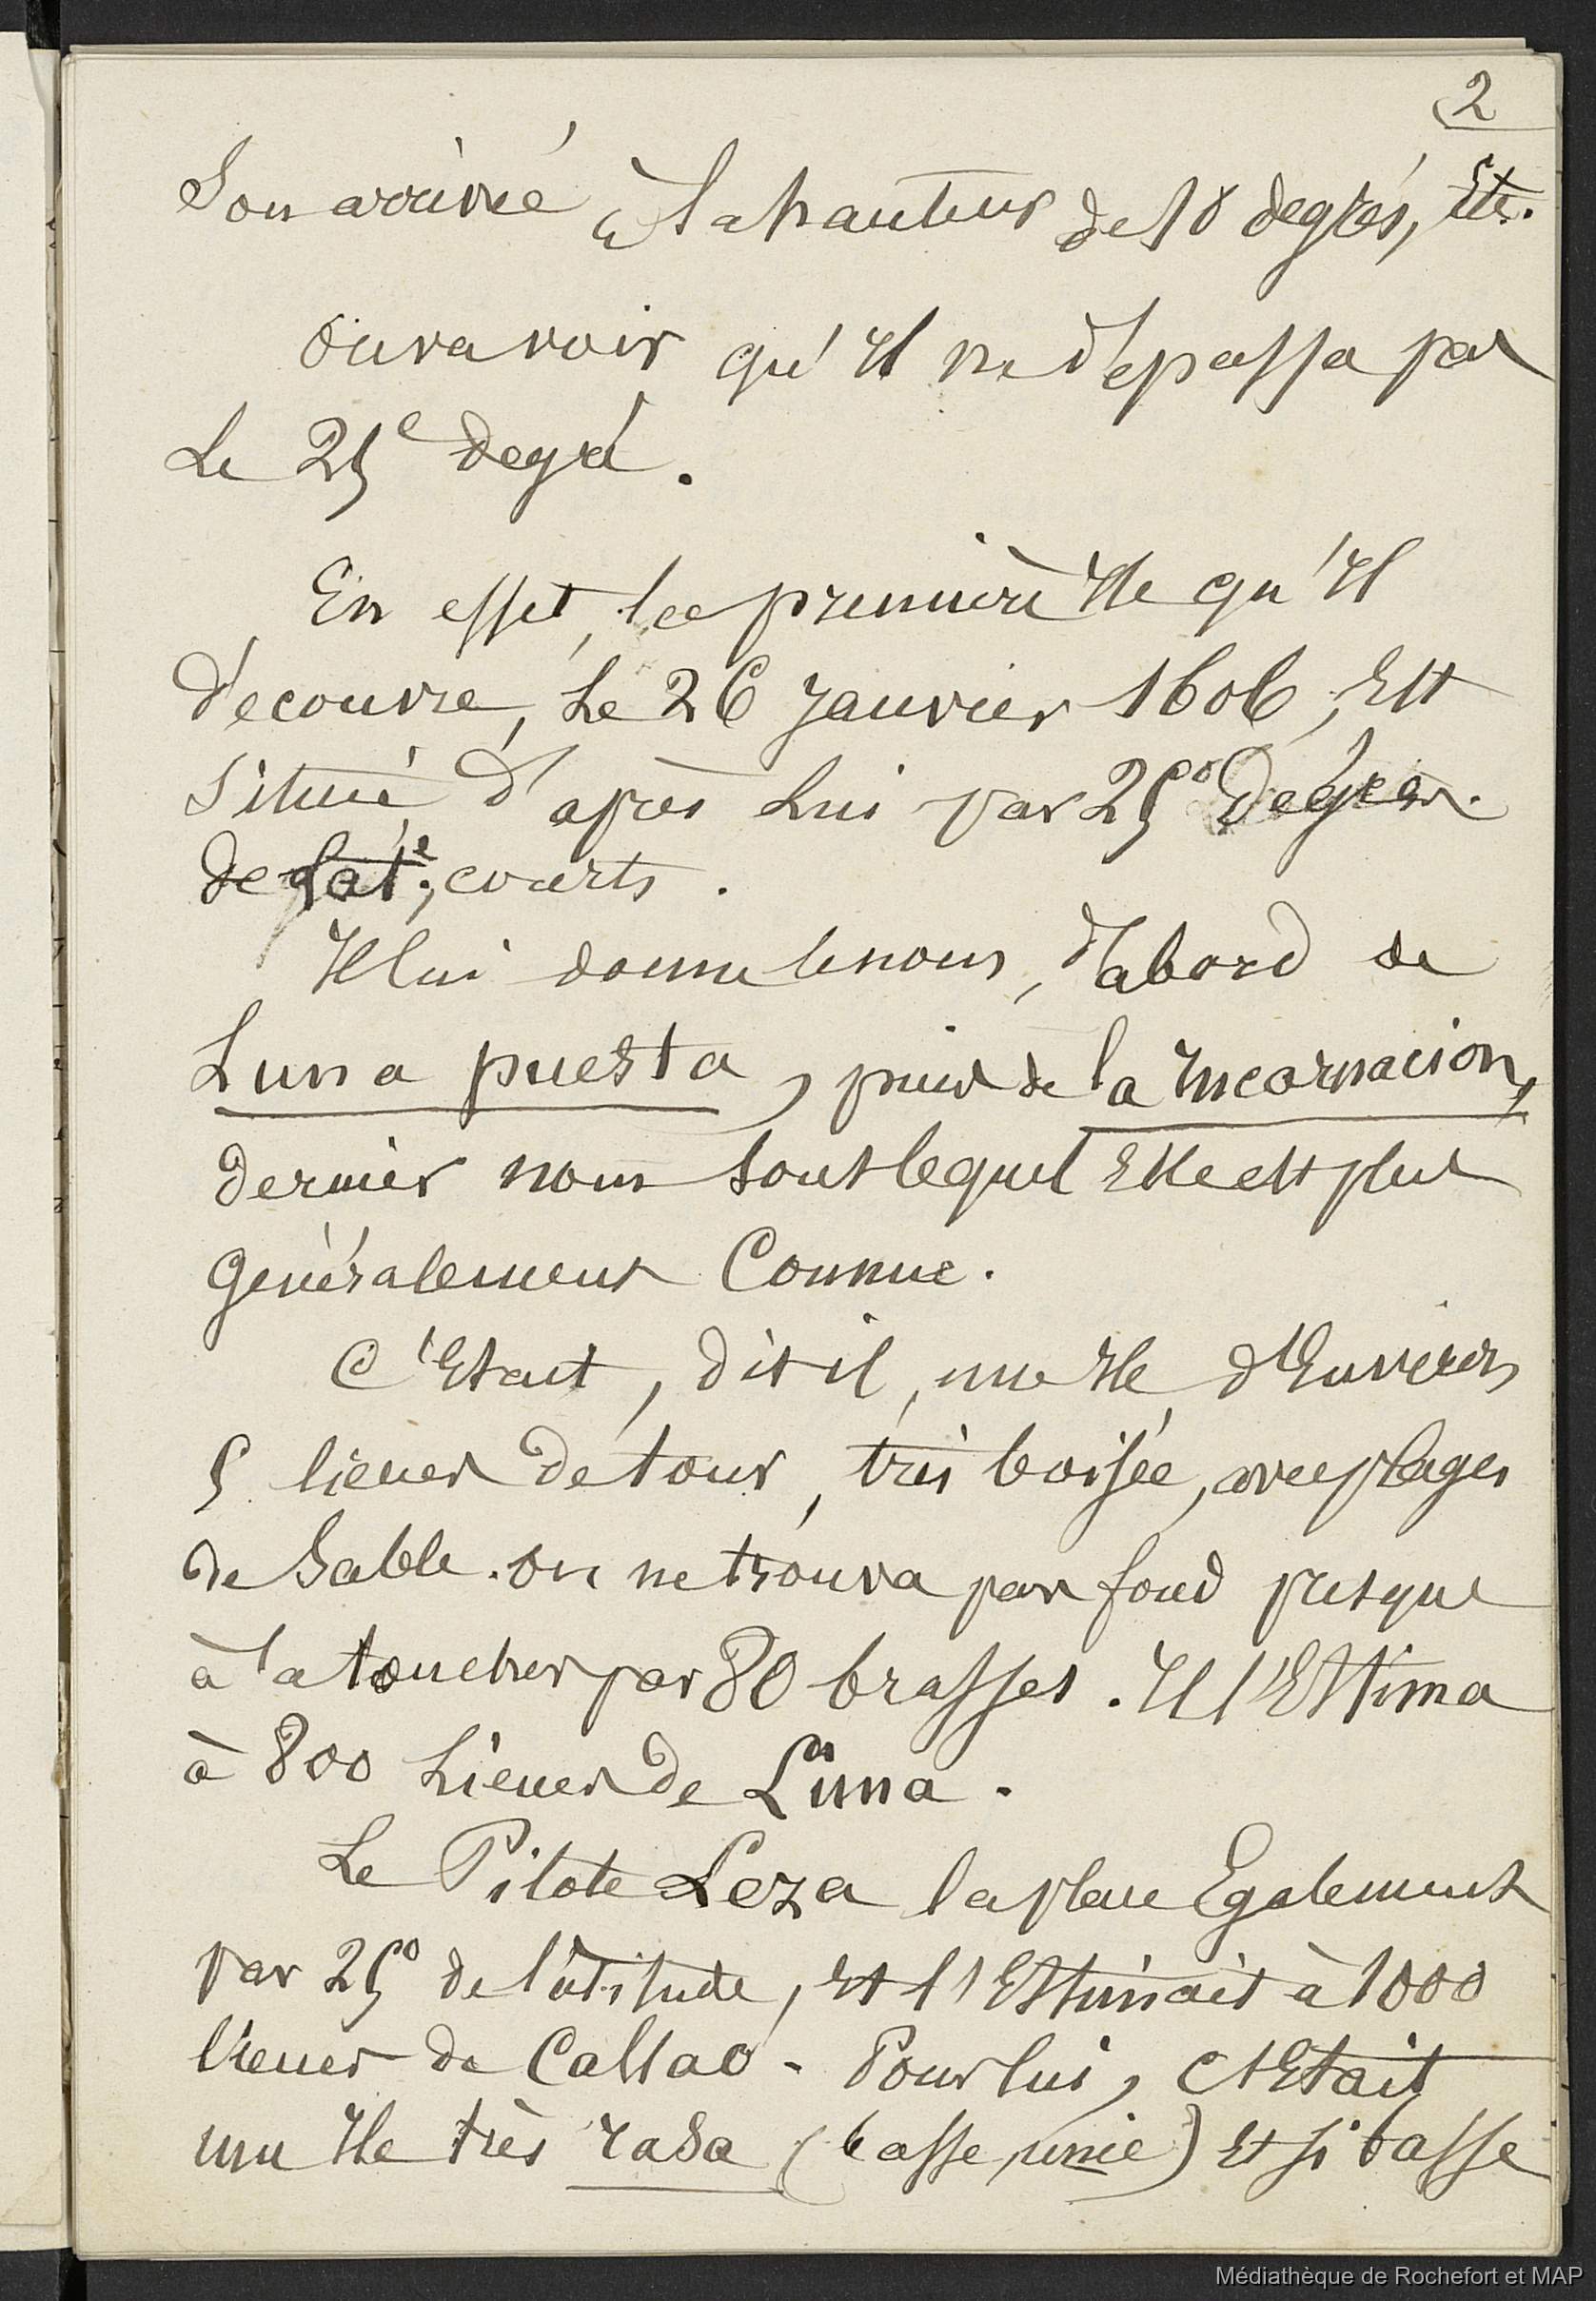 2
Son arrivée à la hauteur de 18 degrés, Etc.
On va voir qu'il ne dépassa pas
Le 25e degré.
En effet, la première Ile qu'il
découvre, Le 26 Janvier 1606, Est
Située d'après Lui par 25°
de Lat.e, courts.
Il lui donne le nom, d'abord de
Luna puesta, puis de la Incarnacion,
dernier nom sous lequel Elle est plus
généralement Connue.
C'Etait, dit il, une Ile d'Environ
5 lieues de tour, très boisée, avec plages
de Sable. On ne trouva pas fond presque
à la toucher par 80 brasses. Il l'Estima
à 800 Lieues de Lima.
Le Pilote Leza la place Egalement
par 25° de latitude, Et l'Estimait à 1000
lieues de Callao - Pour lui, c'Etait
une Ile très rasa (basse, unie) Et si basse
Médiathèque de Rochefort et MAP